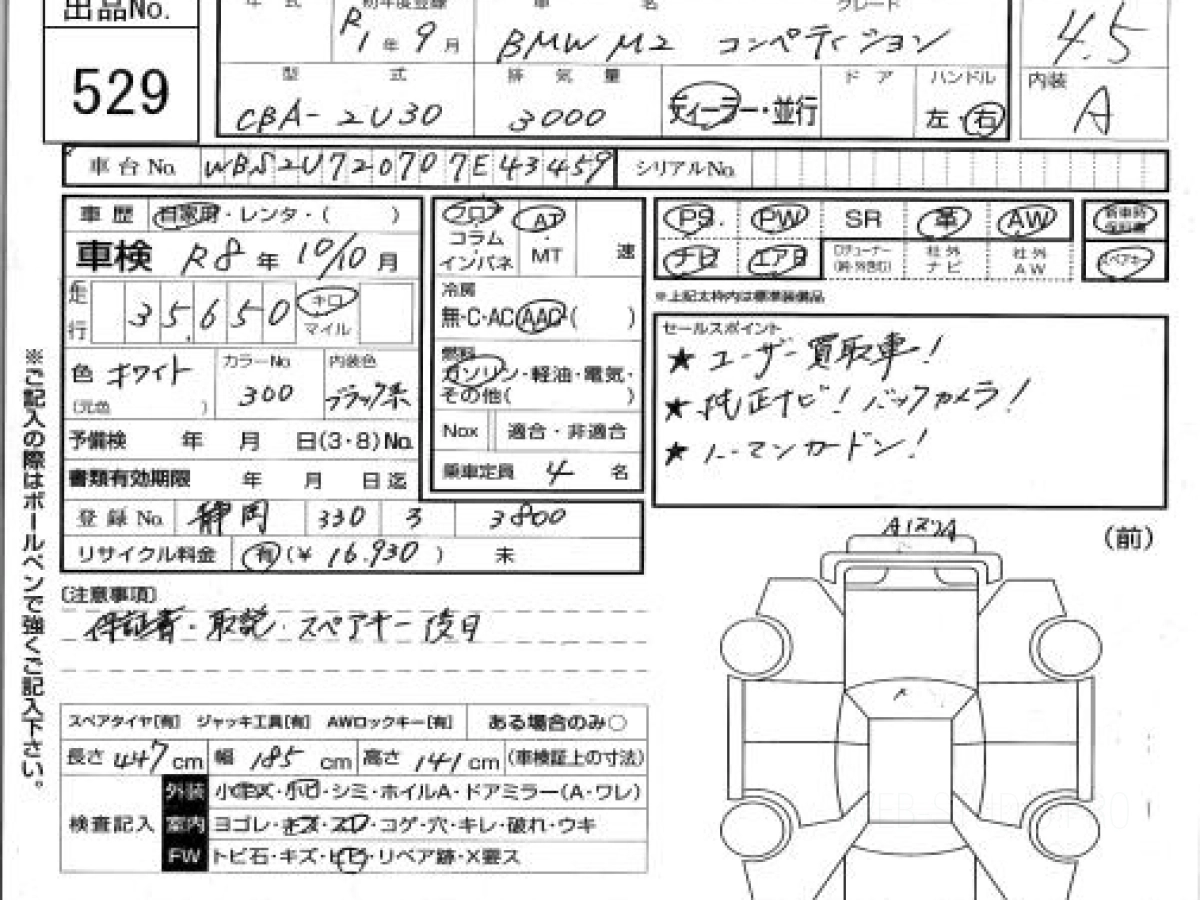 出品No.
529
年 式
初年度登録
R1年 9月
車 名
グレード
BMW M2 コンペティション
4.5
型 式
CBA-2U30
排 気 量
3000
ディーラー・並行
ド ア
ハンドル
左・右
内装
A
車台No. WBS2U720707E43459
シリアルNo.
車 歴 自家用・レンタ・( )
車検 R8年 10/10月
走行 35,650 キロ マイル
色 ホワイト
(元色 )
カラーNo
300
内装色
ブラック系
予備検 年 月 日(3・8)No.
書類有効期限 年 月 日迄
登録No. 静岡 330 3800
リサイクル料金 有(¥ 16.930 ) 未
フロア
コラム
インパネ
AT
・
MT
速
冷房
無・C・AC AAC( )
燃料
ガソリン・軽油・電気・
その他( )
Nox 適合・非適合
乗車定員 4 名
PS PW SR 革 AW
ナビ エアB
社外ナビ
社外AW
新車時保証書
スペアキー
※上記太枠内は標準装備品
セールスポイント
★ ユーザー買取車!
★ 純正ナビ! バックカメラ!
★ ハーマンカードン!
〔注意事項〕
保証書・取説・スペアキー 後日
※ご記入の際はボールペンで強くご記入下さい。
スペアタイヤ[有] ジャッキ工具[有] AWロックキー[有] ある場合のみ○
長さ 447cm 幅 185cm 高さ 141cm (車検証上の寸法)
検査記入
外装 小キズ・小凹・シミ・ホイルA・ドアミラー(A・ワレ)
室内 ヨゴレ・キズ・スレ・コゲ・穴・キレ・破れ・ウキ
FW トビ石・キズ・ヒビ・リペア跡・X要ス
(前)